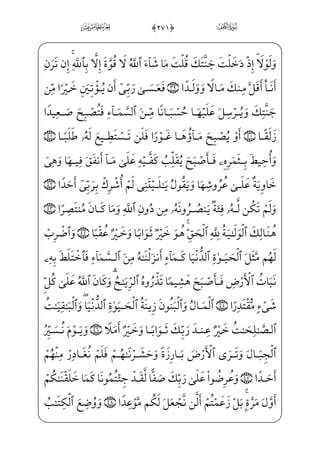 سُورَةُ الكَهْفِ ﴿٢٧١﴾ الجُزْءُ الخَامِسَ عَشَرَ
وَلَوْلَآ إِذْ دَخَلْتَ جَنَّتَكَ قُلْتَ مَا شَآءَ ٱللَّهُ لَا قُوَّةَ إِلَّا بِٱللَّهِ ۚ إِن تَرَنِ
أَنَا۠ أَقَلَّ مِنكَ مَالًا وَوَلَدًا ٣٩ فَعَسَىٰ رَبِّىٓ أَن يُؤْتِيَنِ خَيْرًا مِّن
جَنَّتِكَ وَيُرْسِلَ عَلَيْهَا حُسْبَانًا مِّنَ ٱلسَّمَآءِ فَتُصْبِحَ صَعِيدًا
زَلَقًا ٤٠ أَوْ يُصْبِحَ مَآؤُهَا غَوْرًا فَلَن تَسْتَطِيعَ لَهُۥ طَلَبًا ٤١
وَأُحِيطَ بِثَمَرِهِۦ فَأَصْبَحَ يُقَلِّبُ كَفَّيْهِ عَلَىٰ مَآ أَنفَقَ فِيهَا وَهِىَ
خَاوِيَةٌ عَلَىٰ عُرُوشِهَا وَيَقُولُ يَٰلَيْتَنِى لَمْ أُشْرِكْ بِرَبِّىٓ أَحَدًا ٤٢
وَلَمْ تَكُن لَّهُۥ فِئَةٌ يَنصُرُونَهُۥ مِن دُونِ ٱللَّهِ وَمَا كَانَ مُنتَصِرًا ٤٣
هُنَالِكَ ٱلْوَلَٰيَةُ لِلَّهِ ٱلْحَقِّ ۚ هُوَ خَيْرٌ ثَوَابًا وَخَيْرٌ عُقْبًا ٤٤ وَٱضْرِبْ
لَهُم مَّثَلَ ٱلْحَيَوٰةِ ٱلدُّنْيَا كَمَآءٍ أَنزَلْنَٰهُ مِنَ ٱلسَّمَآءِ فَٱخْتَلَطَ بِهِۦ
نَبَاتُ ٱلْأَرْضِ فَأَصْبَحَ هَشِيمًا تَذْرُوهُ ٱلرِّيَٰحُ ۗ وَكَانَ ٱللَّهُ عَلَىٰ كُلِّ
شَىْءٍ مُّقْتَدِرًا ٤٥ ٱلْمَالُ وَٱلْبَنُونَ زِينَةُ ٱلْحَيَوٰةِ ٱلدُّنْيَا ۖ وَٱلْبَٰقِيَٰتُ
ٱلصَّٰلِحَٰتُ خَيْرٌ عِندَ رَبِّكَ ثَوَابًا وَخَيْرٌ أَمَلًا ٤٦ وَيَوْمَ نُسَيِّرُ
ٱلْجِبَالَ وَتَرَى ٱلْأَرْضَ بَارِزَةً وَحَشَرْنَٰهُمْ فَلَمْ نُغَادِرْ مِنْهُمْ
أَحَدًا ٤٧ وَعُرِضُوا۟ عَلَىٰ رَبِّكَ صَفًّا لَّقَدْ جِئْتُمُونَا كَمَا خَلَقْنَٰكُمْ
أَوَّلَ مَرَّةٍۭ ۚ بَلْ زَعَمْتُمْ أَلَّن نَّجْعَلَ لَكُم مَّوْعِدًا ٤٨ وَوُضِعَ ٱلْكِتَٰبُ